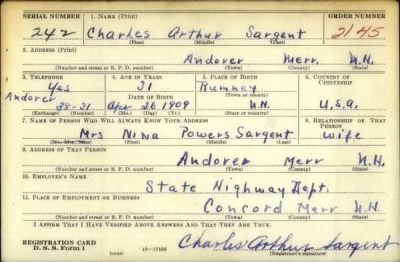 SERIAL NUMBER 1. NAME (Print) ORDER NUMBER
242 Charles Arthur Sargent 2145
(First) (Middle) (Last)
2. ADDRESS (Print)
Andover Merr. N.H.
(Number and street or R. F. D. number) (Town) (County) (State)
3. TELEPHONE 4. AGE IN YEARS 5. PLACE OF BIRTH 6. COUNTRY OF CITIZENSHIP
Yes 31 Rumney
Andover DATE OF BIRTH (Town or county)
38-21 Apr 26 1909 N.H. U.S.A.
(Exchange) (Number) (Mo.) (Day) (Yr.) (State or country)
7. NAME OF PERSON WHO WILL ALWAYS KNOW YOUR ADDRESS 8. RELATIONSHIP OF THAT PERSON
Mrs Nina Powers Sargent Wife
(Mr., Mrs., Miss) (First) (Middle) (Last)
9. ADDRESS OF THAT PERSON
Andover Merr N.H.
(Number and street or R. F. D. number) (Town) (County) (State)
10. EMPLOYER'S NAME
State Highway Dept.
11. PLACE OF EMPLOYMENT OR BUSINESS
Concord Merr N.H.
(Number and street or R. F. D. number) (Town) (County) (State)
I AFFIRM THAT I HAVE VERIFIED ABOVE ANSWERS AND THAT THEY ARE TRUE.
REGISTRATION CARD
D. S. S. Form 1 Charles Arthur Sargent
(Registrant's signature)